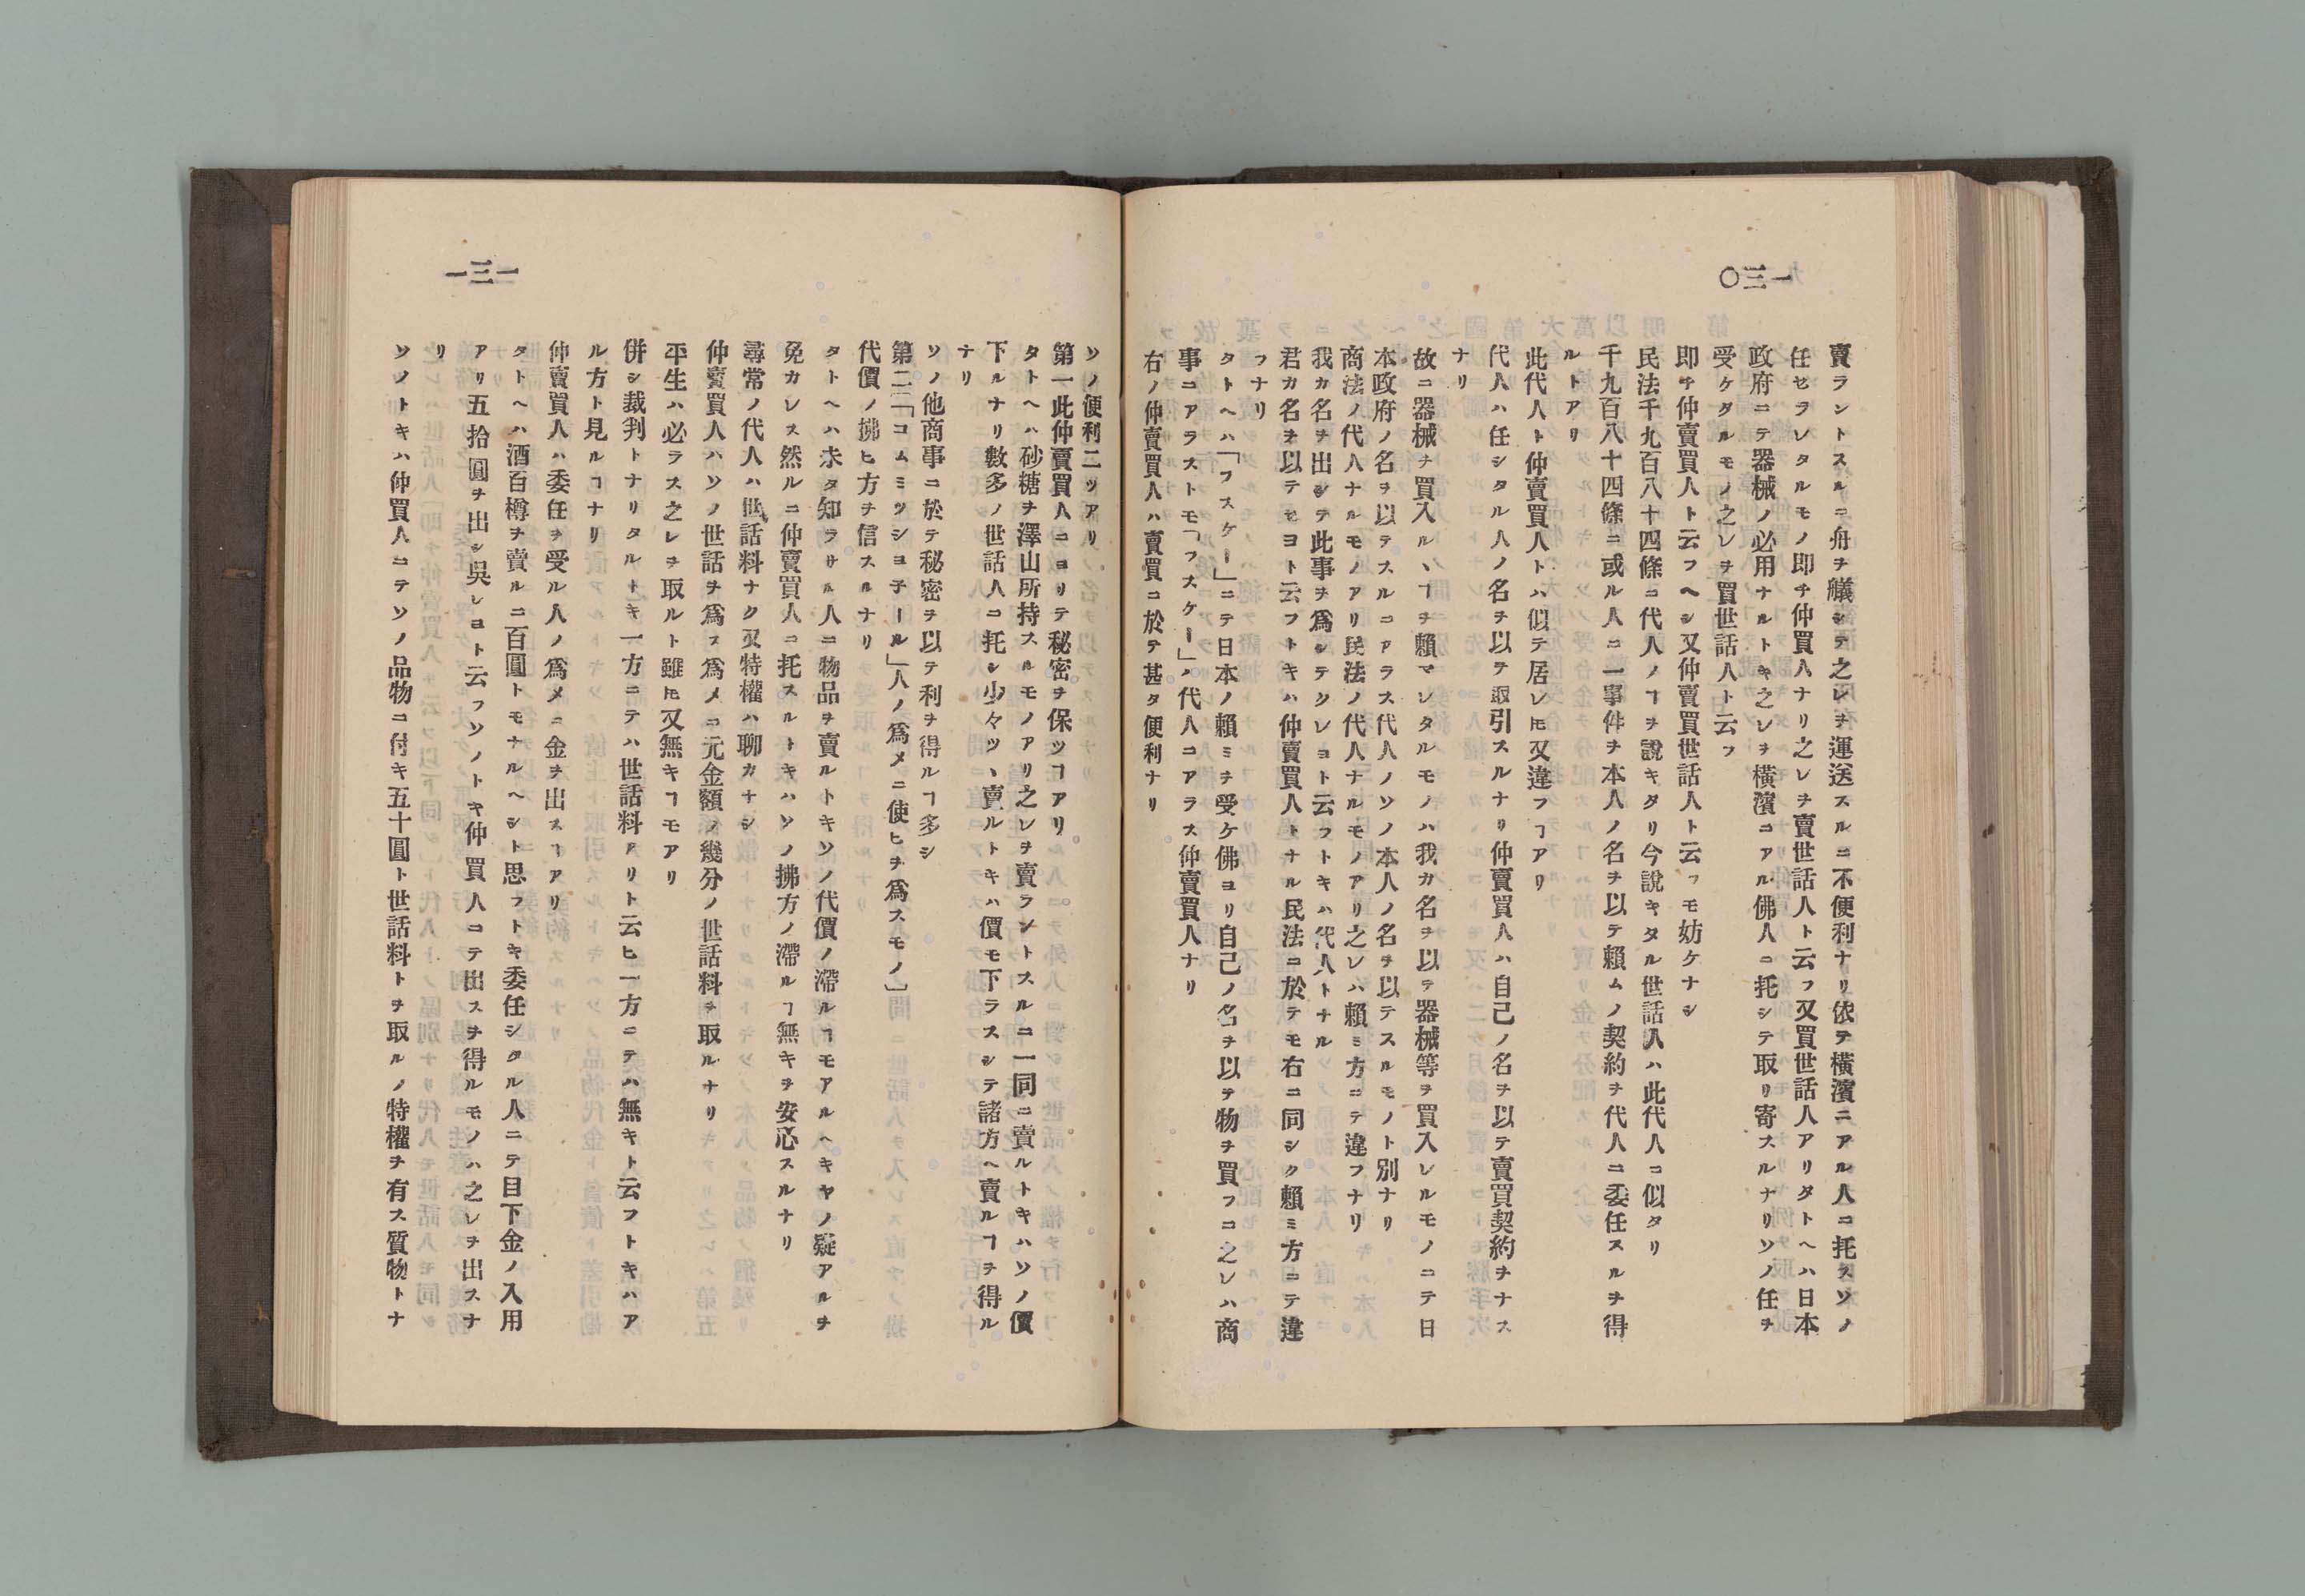 一三〇
賣ラントスルニ舟ヲ艤シテ之レヲ運送スルニ不便利ナリ依テ橫濱ニアル人ニ托スソノ
任セラレタルモノ即チ仲買人ナリ之レヲ賣世話人ト云フ又買世話人アリタトヘハ日本
政府ニテ器械ノ必用ナルトキ之レヲ橫濱ニアル佛人ニ托シテ取リ寄スルナリソノ任ヲ
受ケタルモノ之レヲ買世話人ト云フ
即チ仲賣買人ト云フヘシ又仲賣買世話人ト云フモ妨ケナシ
民法千九百八十四條ニ代人ノヿヲ說キタリ今說キタル世話人ハ此代人ニ似タリ
千九百八十四條ニ或ル人ニ一事件ヲ本人ノ名ヲ以テ賴ムノ契約ヲ代人ニ委任スルヲ得
ルトアリ
此代人ト仲賣買人トハ似テ居レ𪜈又違フヿアリ
代人ハ任シタル人ノ名ヲ以テ取引スルナリ仲賣買人ハ自己ノ名ヲ以テ賣買契約ヲナス
ナリ
故ニ器械ヲ買入ルヽヿヲ賴マレタルモノハ我カ名ヲ以テ器械等ヲ買入レルモノニテ日
本政府ノ名ヲ以テスルニアラス代人ノソノ本人ノ名ヲ以テスルモノト別ナリ
商法ノ代人ナルモノアリ民法ノ代人ナルモノアリ之レハ賴ミ方ニテ違フナリ
我カ名ヲ出シテ此事ヲ爲シテクレヨト云フトキハ代人トナル
君カ名ヲ以テセヨト云フトキハ仲賣買人トナル民法ニ於テモ右ニ同シク賴ミ方ニテ違
フナリ
タトヘハ「フスケー」ニテ日本ノ賴ミヲ受ケ佛ヨリ自己ノ名ヲ以テ物ヲ買フニ之レハ商
事ニアラストモ「フスケー」ハ代人ニアラス仲賣買人ナリ
右ノ仲賣買人ハ賣買ニ於テ甚タ便利ナリ
一三一
ソノ便利二ツアリ
第一此仲賣買人ニヨリテ秘密ヲ保ツヿアリ
タトヘハ砂糖ヲ澤山所持スルモノアリ之レヲ賣ラントスルニ一同ニ賣ルトキハソノ價
下ルナリ數多ノ世話人ニ托シ少々ツヽ賣ルトキハ價モ下ラスシテ諸方ヘ賣ルヿヲ得ル
ナリ
ソノ他商事ニ於テ秘密ヲ以テ利ヲ得ルヿ多シ
第二「コムミツシヨ子ール」人ノ爲メニ使ヒヲ爲スモノ」
代價ノ拂ヒ方ヲ信スルナリ
タトヘハ未タ知ラサル人ニ物品ヲ賣ルトキソノ代價ノ滯ルヿモアルヘキヤノ疑アルヲ
免カレス然ルニ仲賣買人ニ托スルトキハソノ拂方ノ滯ルヿ無キヲ安心スルナリ
尋常ノ代人ハ世話料ナク又特權ハ聊カナシ
仲賣買人ハソノ世話ヲ爲ス爲メニ元金額ノ幾分ノ世話料ヲ取ルナリ
平生ハ必ラス之レヲ取ルト雖𪜈又無キヿモアリ
併シ裁判トナリタルトキ一方ニテハ世話料アリト云ヒ一方ニテハ無キト云フトキハア
ル方ト見ルヿナリ
仲賣買人ハ委任ヲ受ル人ノ爲メニ金ヲ出スヿアリ
タトヘハ酒百樽ヲ賣ルニ二百圓トモナルヘシト思フトキ委任シタル人ニテ目下金ノ入用
アリ五拾圓ヲ出シ吳レヨト云フソノトキ仲買人ニテ出スヲ得ルモノハ之レヲ出スナ
リ
ソノトキハ仲買人ニテソノ品物ニ付キ五十圓ト世話料トヲ取ルノ特權ヲ有ス質物トナ